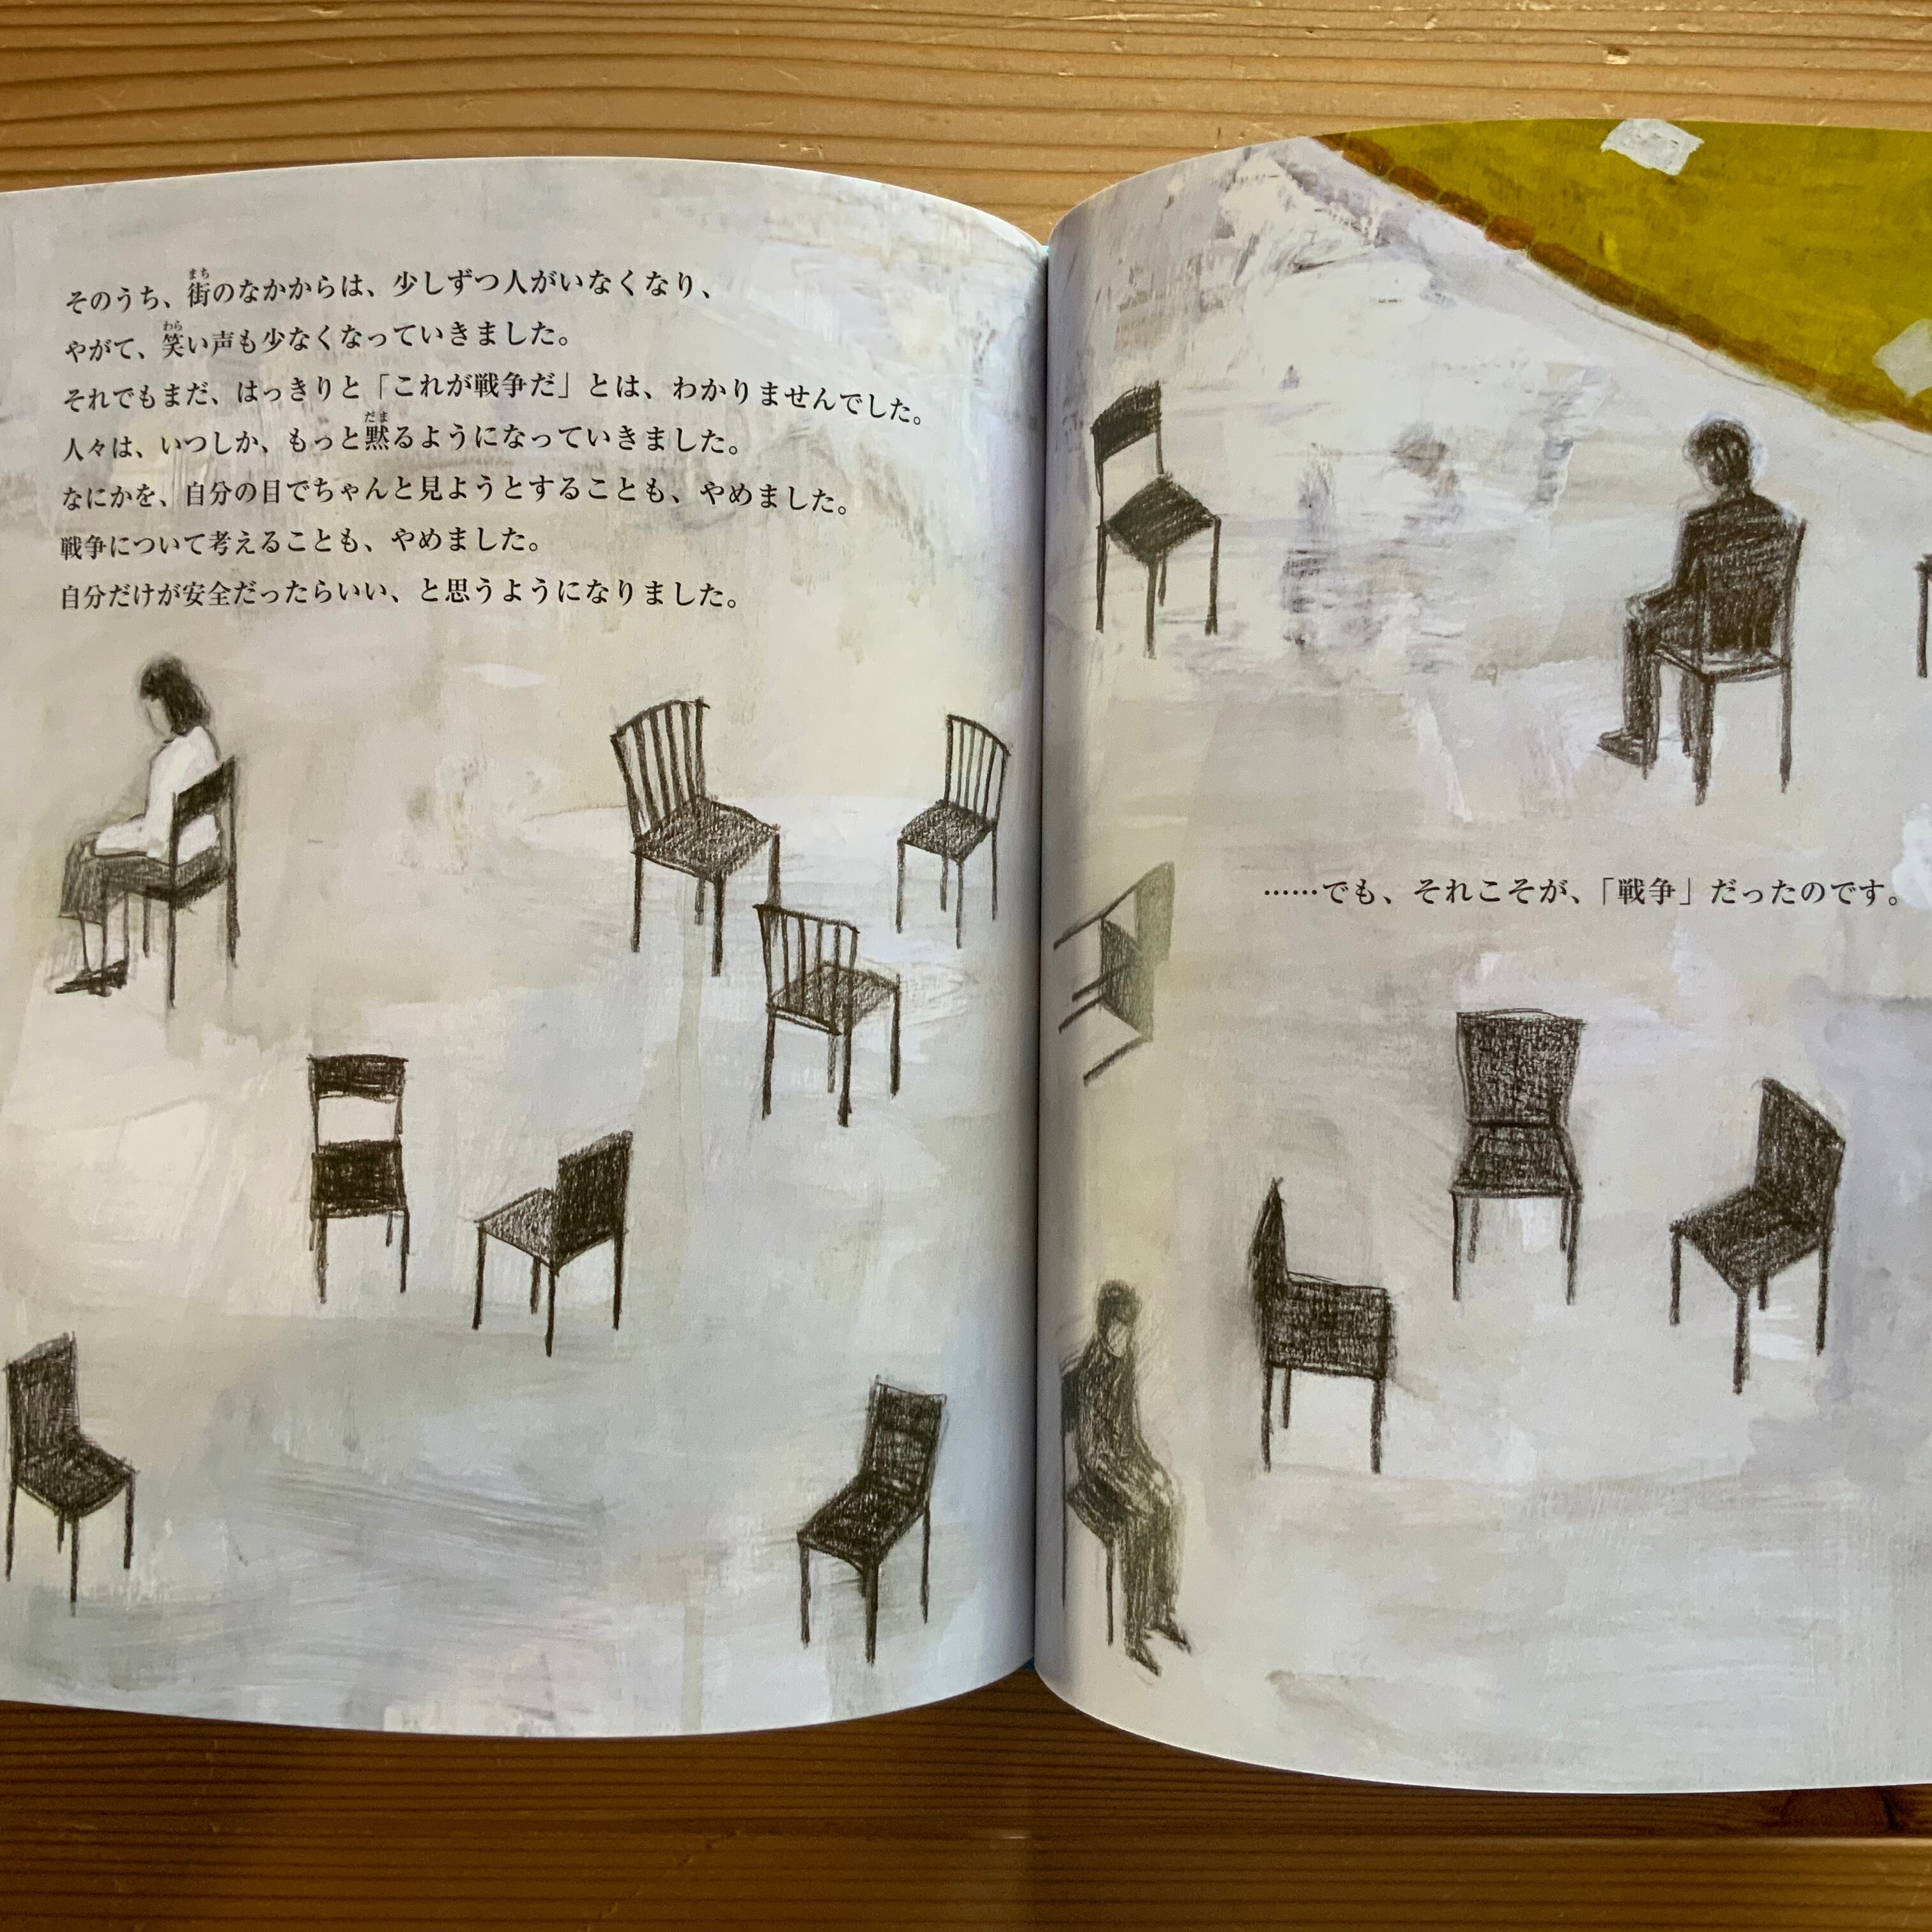 そのうち、街のなかからは、少しずつ人がいなくなり、
やがて、笑い声も少なくなっていきました。
それでもまだ、はっきりと「これが戦争だ」とは、わかりませんでした。
人々は、いつしか、もっと黙るようになっていきました。
なにかを、自分の目でちゃんと見ようとすることも、やめました。
戦争について考えることも、やめました。
自分だけが安全だったらいい、と思うようになりました。
……でも、それこそが、「戦争」だったのです。